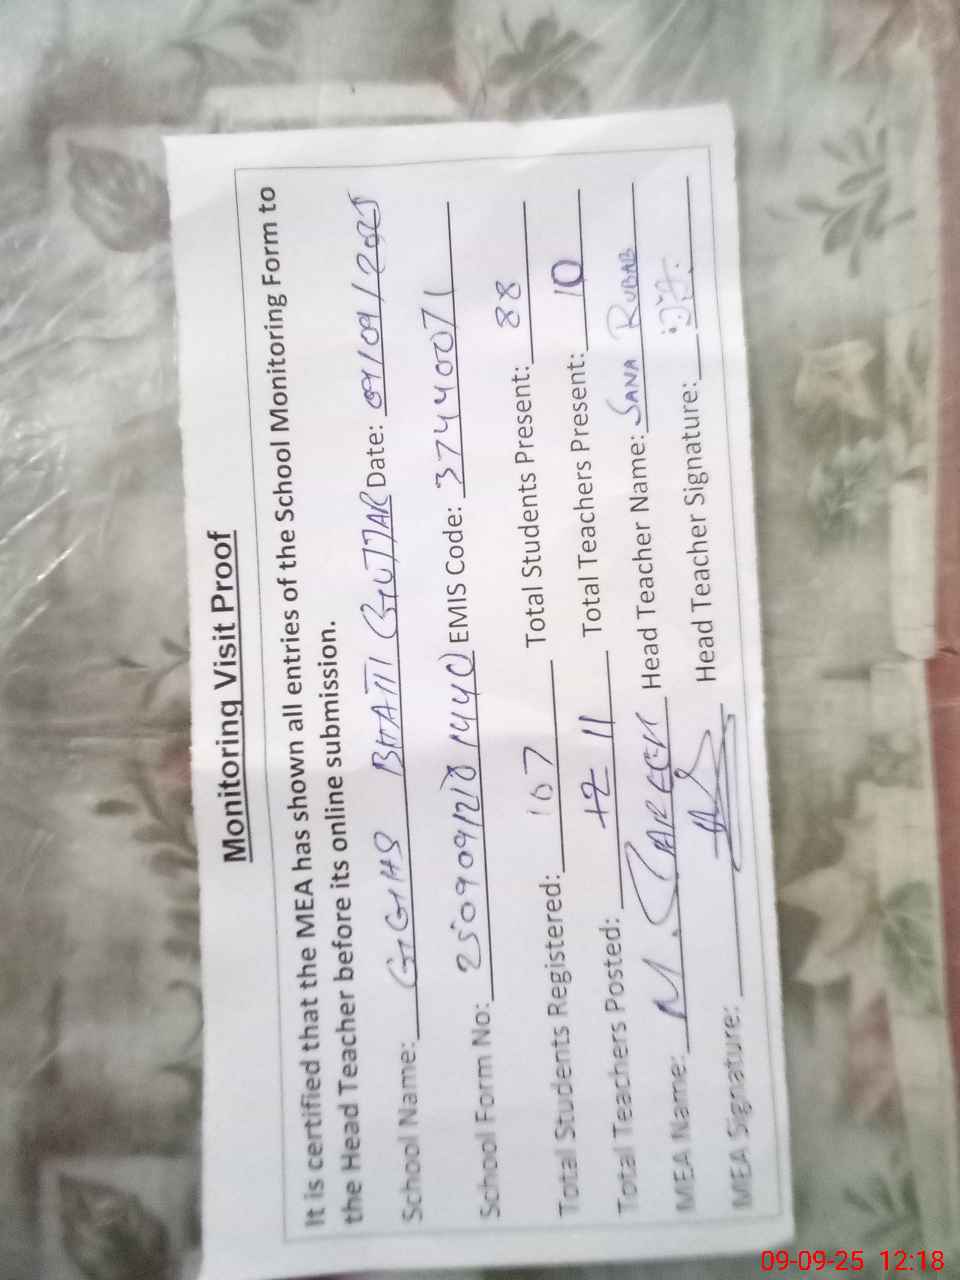 Monitoring Visit Proof
It is certified that the MEA has shown all entries of the School Monitoring Form to
the Head Teacher before its online submission.
School Name: GGHS BHATTI GUTTAR Date: 09/09/2025
School Form No: EMIS Code: 37440071
Total Students Registered: 167 Total Students Present: 88
Total Teachers Posted: 12 11 Total Teachers Present: 10
MEA Name: M. Head Teacher Name: SANA RUBAB
MEA Signature: Head Teacher Signature:
09-09-25 12:18